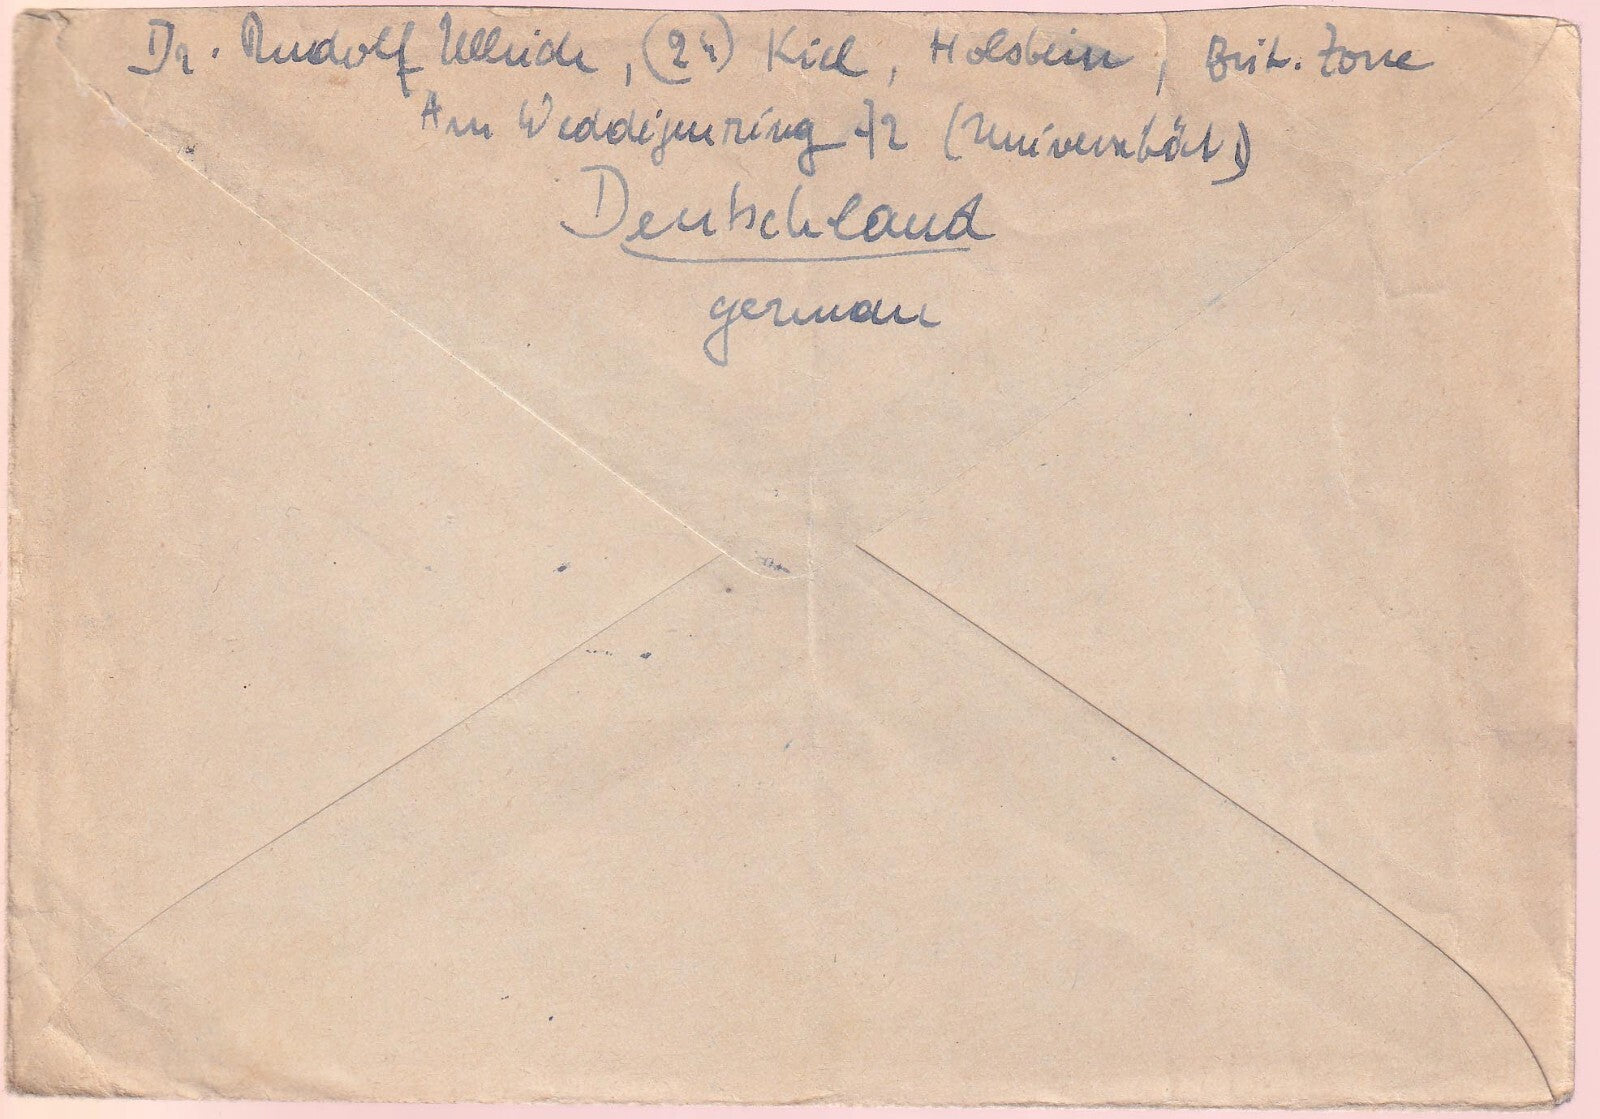 Dr. Rudolf Ullrich, (24) Kiel, Holstein, Brit. Zone
Am Weddigenring 72 (Universität)
Deutschland
german